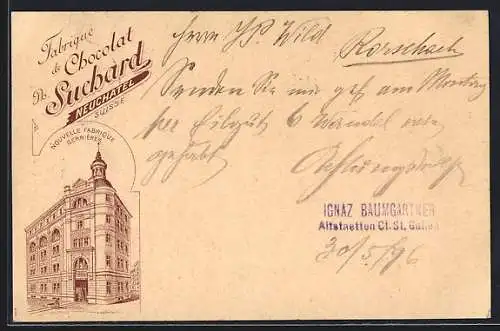 Fabrique
de Chocolat
Ph. Suchard
NEUCHATEL
SUISSE
NOUVELLE FABRIQUE
SERRIÈRES
Herrn Wild
Rorschach
Senden Sie mir gef. am Montag
per Eilgut 6
gehabt Achtungsvoll
IGNAZ BAUMGARTNER
Altstaetten Ct. St. Gallen
30/5/96